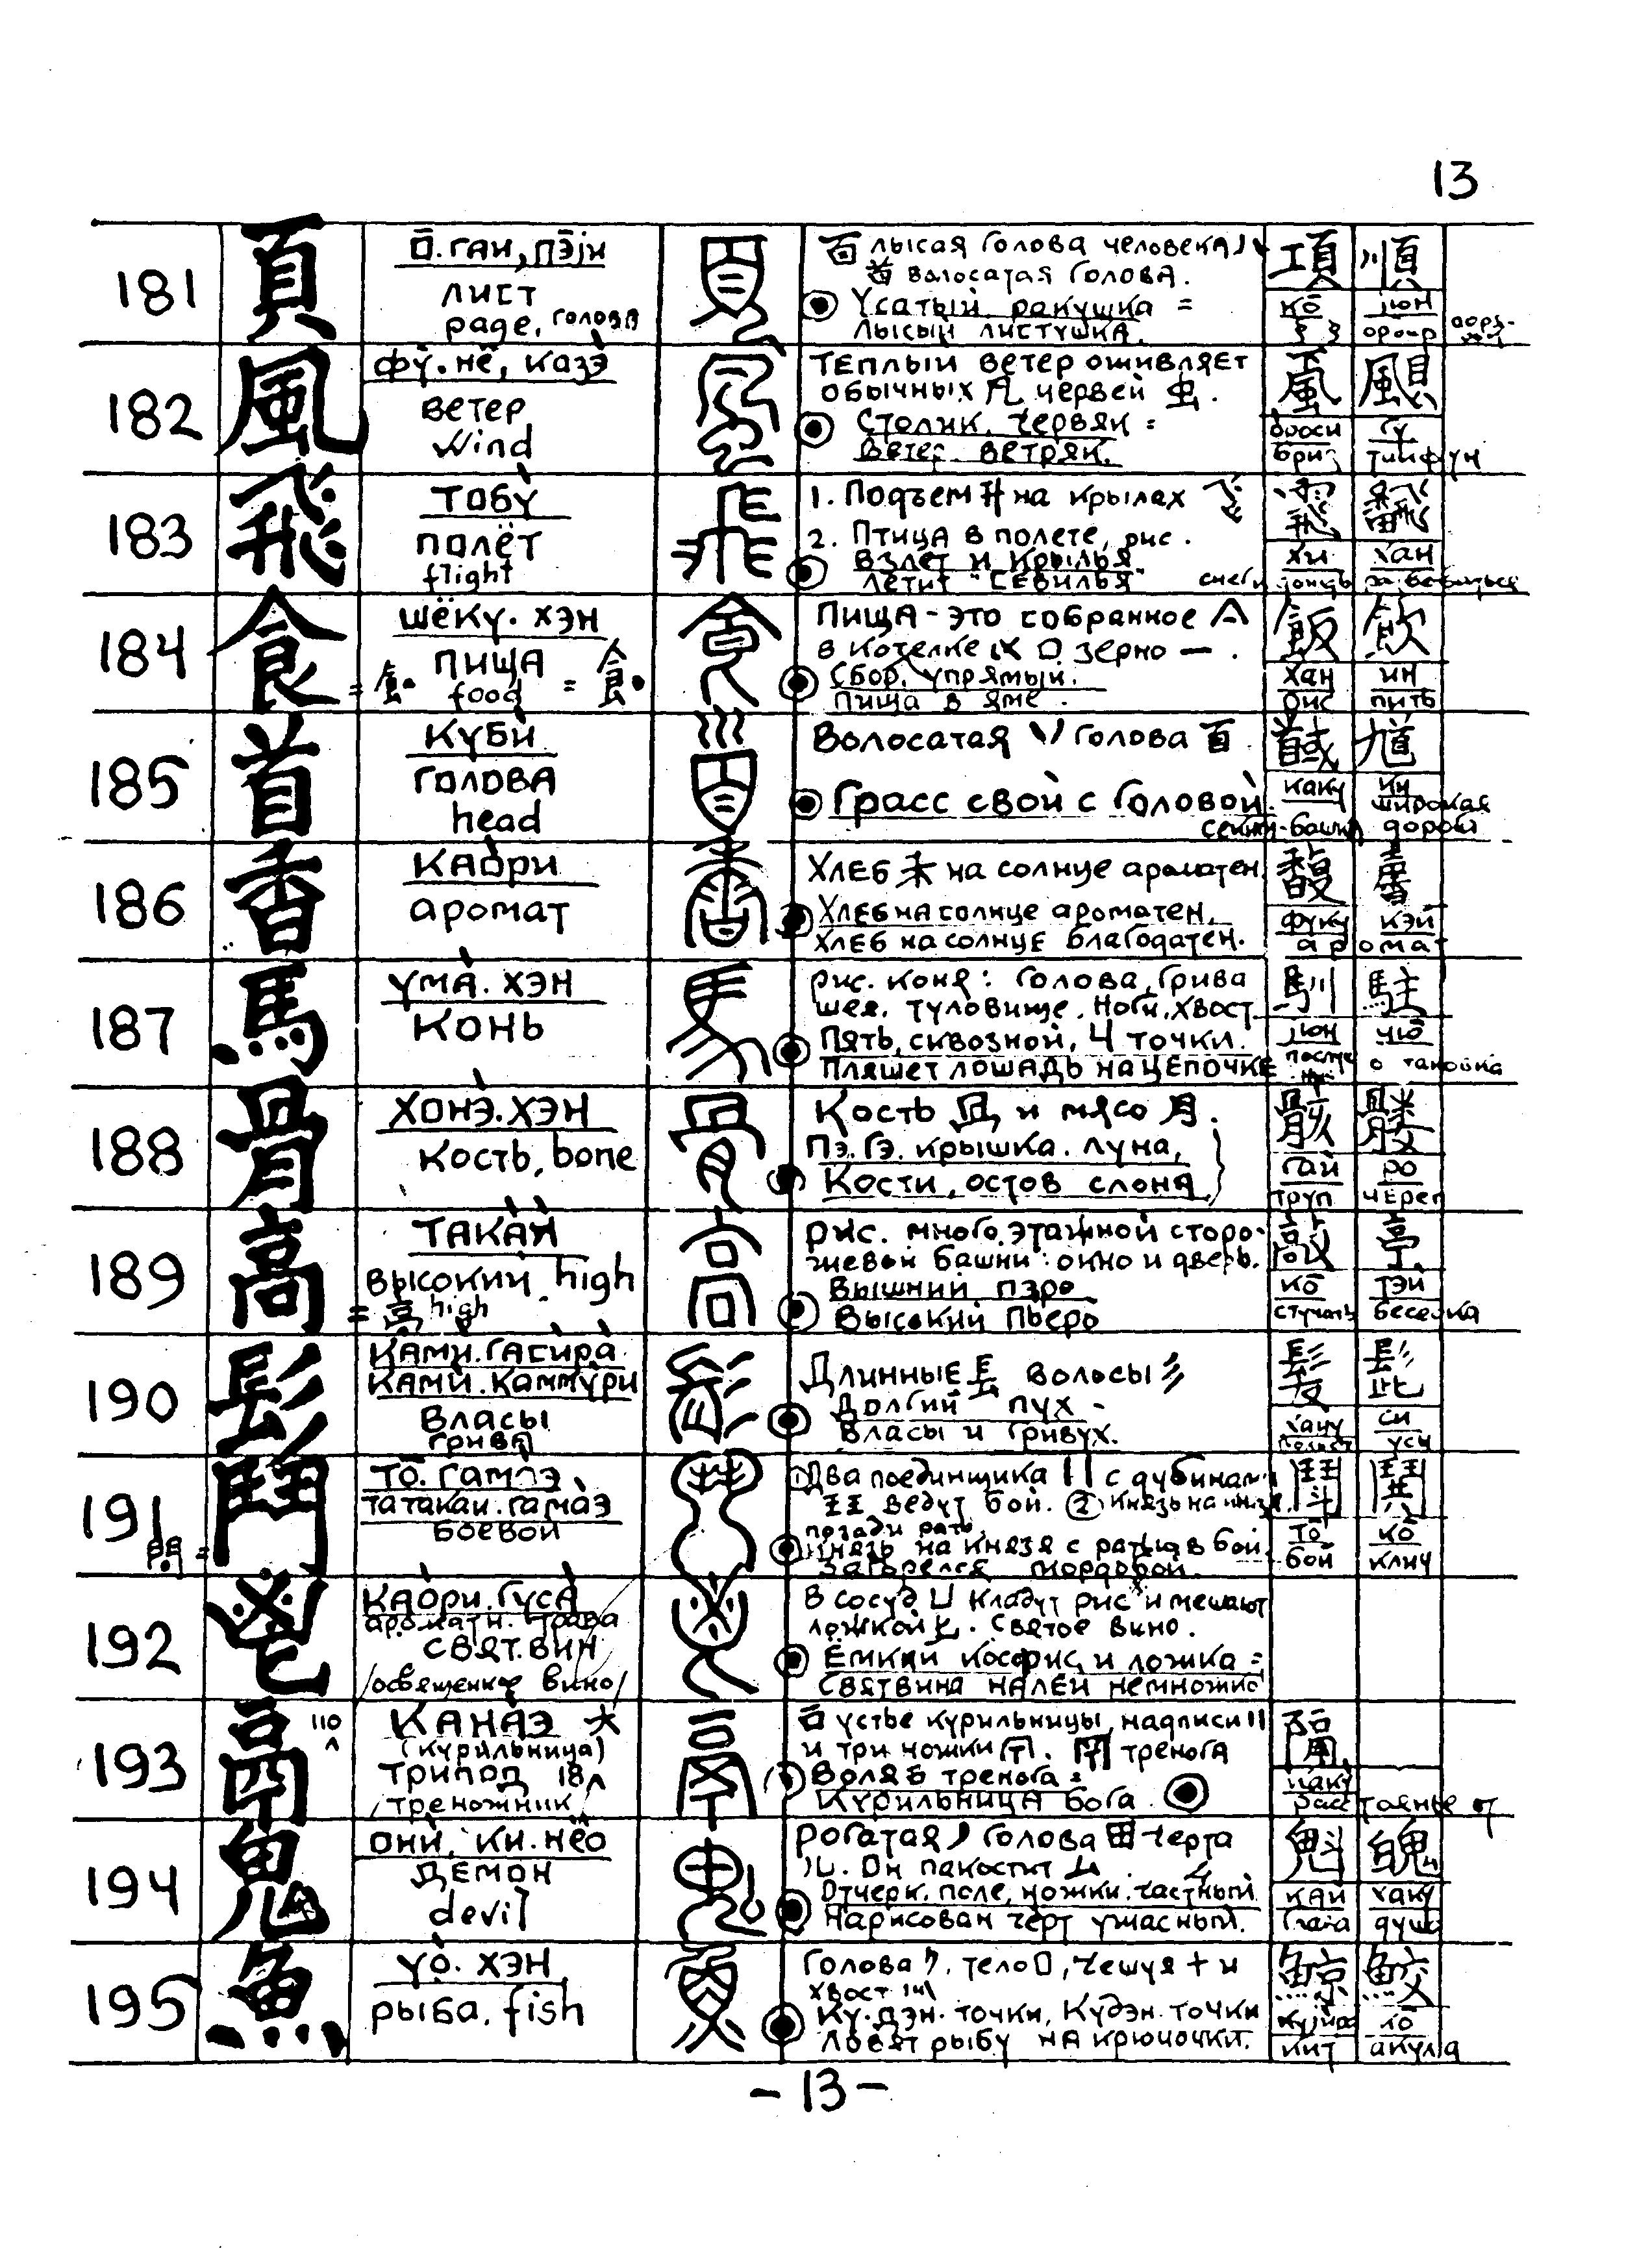 13
181
頁
О̄.ГАИ, ПЭ̄JИ
ЛИСТ
page, ГОЛОВА
百 лысая голова человека八
首 волосатая голова.
Усатый ракушка =
лысый листушка.
項 順
кō
182
風
фӯ. нё, казэ
ветер
Wind
Теплый ветер оживляет
обычных 几 червей 虫.
Столик, червяк =
Ветер ветряк.
гу
бриз тайфун
183
飛
ТОБУ
полёт
flight
1. Подъем 升 на крыльях 飞
2. Птица в полете, рис.
взлет и крылья
летит "Севилья"
хи хан
184
食
шёку. хэн
= 食 пища = 食
food
Пища - это собранное 人
в котелке 艮 口 зерно 一.
Сбор, упрямый.
Пища в яме.
飯 飲
хан ин
рис пить
185
首
Куби
голова
head
Волосатая 丷 голова 百
Грасс свой с головой.
馘 馗
каку ки
широкая
дорога
186
香
КАОРИ
аромат
Хлеб 禾 на солнце ароматен.
Хлеб на солнце ароматен.
Хлеб на солнце благодатен.
馥
фуку кэй
аромат
187
馬
УМА. ХЭН
КОНЬ
рис. коня: голова, грива
шея, туловище, ноги, хвост
Пять, сквозной, 4 точки.
Пляшет лошадь на цепочке
馴 駐
188
骨
ХОНЭ.ХЭН
кость, bone
Кость 冎 и мясо 月.
Пэ. Гэ. крышка. луна,
Кости, остов слона
骸 髏
гай ро
труп череп
189
高
ТАКАЙ
высокий high
= 髙 high
рис. много.этажной сторо-
жевой башни: окно и дверь.
Вышний пэро
Высокий Пьеро
亭
кō тэй
стучать беседка
190
髟
КАМИ.ГАСИРА
КАМИ.КАММУРИ
Власы
грива
Длинные 镸 волосы 彡
Долгий пух -
Власы и гривух.
髪 髭
си
усы
191
鬥
ТО̄. ГАМАЭ
ТАТАКАИ.ГАМАЭ
боевой
① Два поединщика | | с дубинами
王王 ведут бой. ② князь на князя
позади рать.
Князь на князя с ратью в бой.
тō кō
бой клич
192
鬯
КАОРИ.ГУСА
аромати. трава
свят.вин
/освященное вино/
В сосуд 凵 кладут рис и мешают
ложкой 匕. Святое вино.
Ёмкий косфис, и ложка =
Святвина налей немножко
193
鬲
110
КАНАЭ
(курильница)
трипод 18
/треножник/
устье курильницы, надписи
и три ножки. тренога
тренога =
Курильница бога.
隔
каку
194
鬼
ОНИ, КИ.НЁО
ДЕМОН
devil
Рогатая ノ голова 田 черта
儿. Он пакостит 厶.
Отчерк. поле, ножки. частный
Нарисован чёрт ужасный.
魁 魄
кай хаку
душа
195
魚
УО. ХЭН
рыба, fish
Голова ク, тело 口, чешуя 十 и
хвост 灬
Ку.дэн. точки, Кудэн точки
Ловят рыбу на крючочки.
鯨 鮫
кō
кит акула
- 13 -